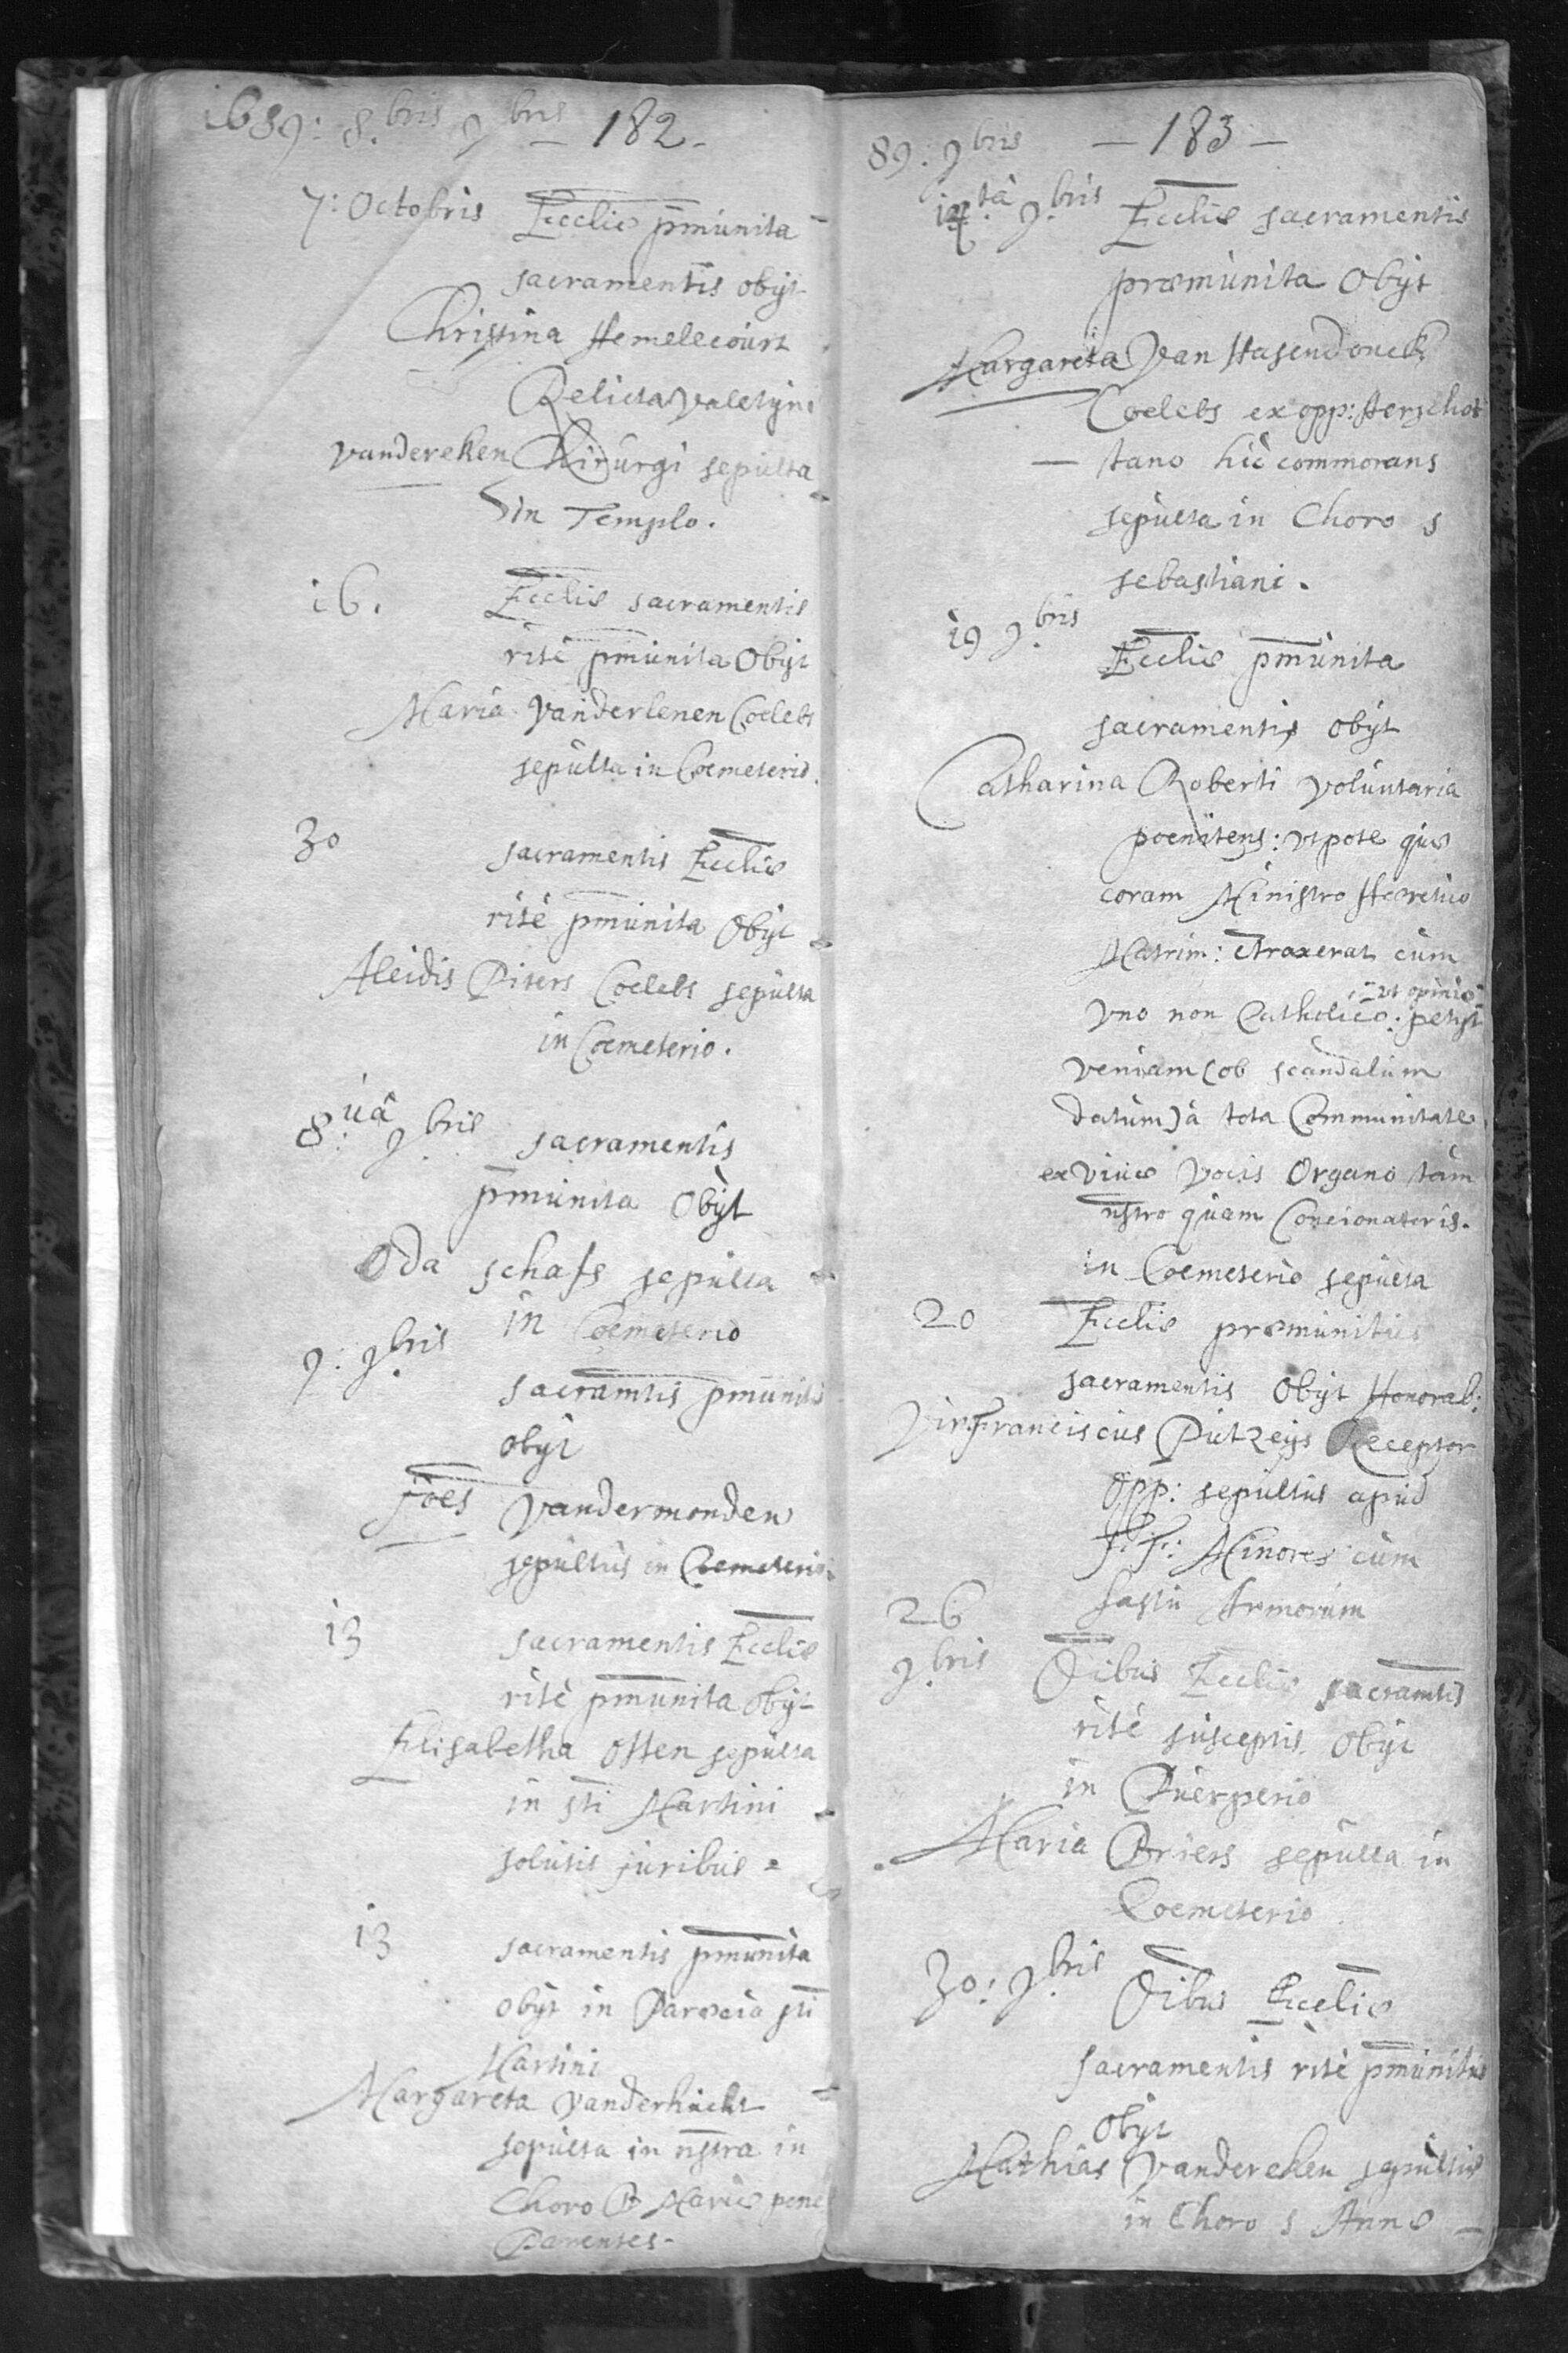 1689: 8.bris 9.bris - 182 -
7: Octobris Ecclie p̄munita
sacramentis obijt
Christina Hemelecourt
Relicta Valetijns
vandereken Chirurgi sepulta
in Templo.
16. Ecclie sacramentis
ritè p̄munita Obijt
Maria Vanderlenen Coelebs
sepulta in Coemeterio.
30 sacramentis Ecclie
ritè p̄munita Obijt
Aleidis Piters Coelebs sepulta
in Coemeterio.
8:uâ 9.bris sacramentis
p̄munita Obijt
Oda schafs sepulta
in Coemeterio
9: 9.bris
sacramtis pmunitus
obijt
Joes Vandermonden
sepultus in Coemeterio.
13 sacramentis Ecclie
ritè pmunita obijt
Elisabetha Otten sepulta
in sti Martini
solutis juribus =
13 sacramentis pmunita
obijt in Paroecia sti
Martini
Margareta Vanderhucht
sepulta in nstra in
Choro B Mariæ pene
Parentes -
89: 9.bris - 183 -
14.tâ 9.bris Ecclie sacramentis
præmunita Obijt
Margareta Van Hasendonck
Coelebs ex opp: Herschot
- tano hic commorans
sepulta in Choro s
sebastiani.
19 9.bris
Ecclie p̄munita
sacramentis obijt
Catharina Roberti voluntaria
poenitens: utpote quæ
coram Ministro Hæretico
Matrim: ctraxerat cum
ut opinio
Vno non Catholico: petijt
veniam (ob scandalum
datum) à tota Communitate
ex vivæ vocis Organo tam
nstro quam Concionatoris.
in Coemeterio sepulta
20 Ecclie præmunitus
sacramentis Obijt Honorab:
Vir Franciscus Putzeijs Receptor
Opp: sepultus apud
F.F: Minores cum
fastu Armorum
26
9.bris Oibus Ecclie sacramtis
ritè susceptis Obijt
in Puerperio
Maria Briers sepulta in
Coemeterio
30: 9.bris Oibus Ecclie
sacramentis ritè p̄munitus
Obijt
Mathias Vandereken sepultus
in Choro s Annæ -